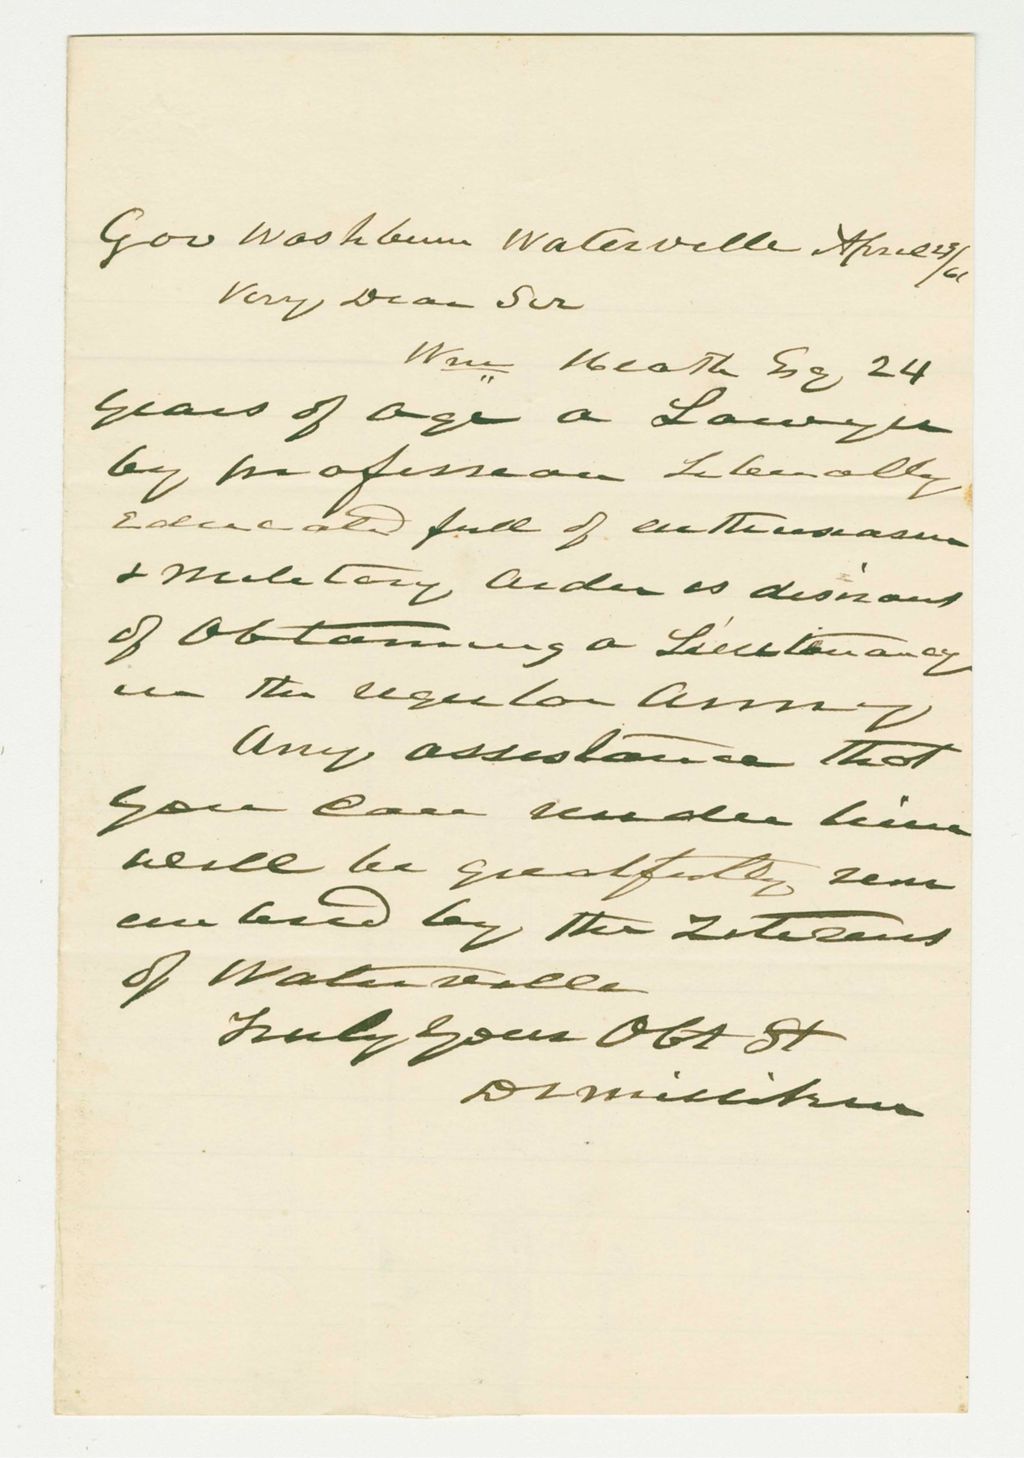 Gov Washburn Waterville April 23/61
Very Dear Sir
Wm Heath Esq 24
years of age a Lawyer
by profession Liberally
Educated full of enthusiasm
& Military Ardor is desirous
of Obtaining a Lieutenancy
in the regular Army
Any assistance that
you can render him
will be greatfully rem
embered by the Citizens
of Waterville
Truly Your Obt St
D L Milliken